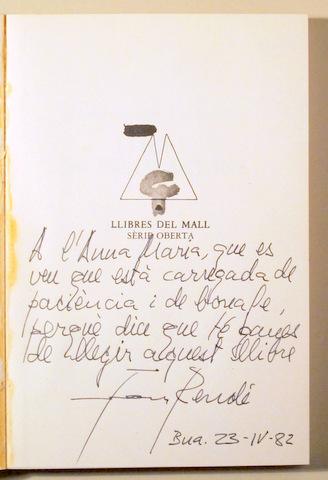 LLIBRES DEL MALL
SÈRIE OBERTA
A l'Anna Maria, que es
veu que està carregada de
paciència i de bona fe,
perquè diu que té ganes
de llegir aquest llibre
Joan Rendé
Bna. 23-IV-82